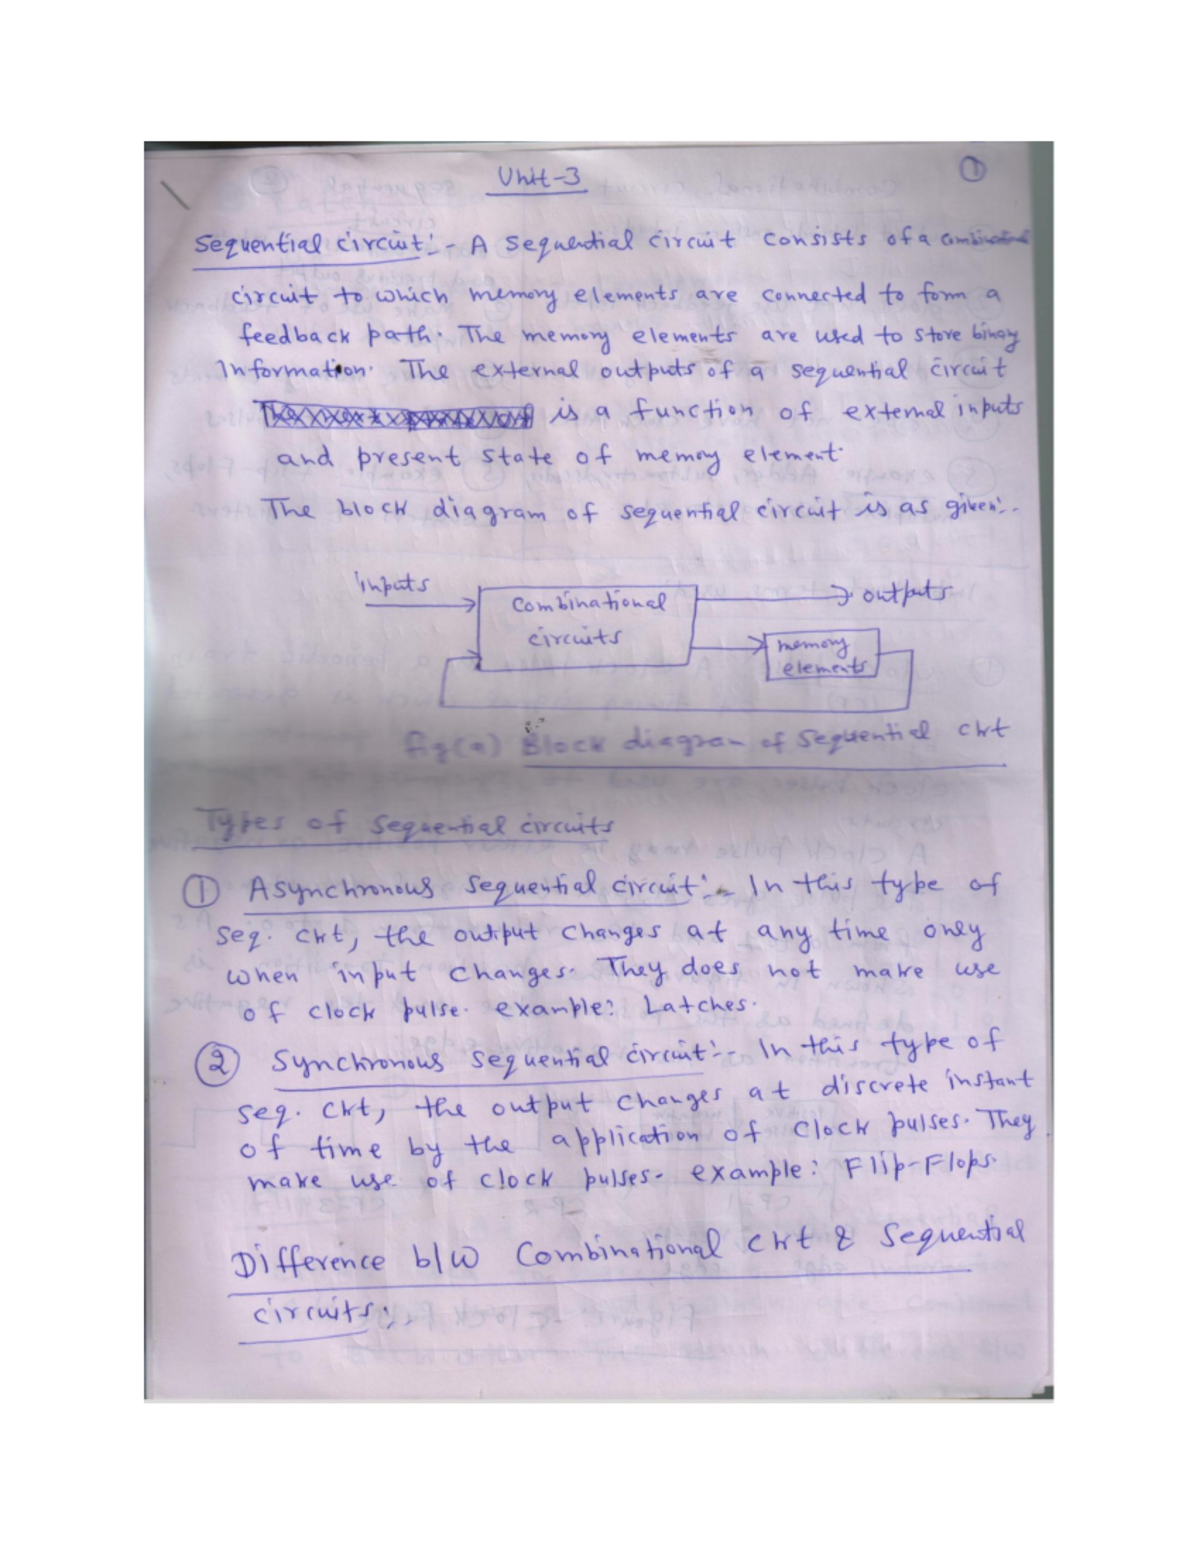 Unit-3
1
Sequential circuit:- A sequential circuit consists of a combinational
circuit to which memory elements are connected to form a
feedback path. The memory elements are used to store binary
Information. The external outputs of a sequential circuit
is a function of external inputs
and present state of memory element.
The block diagram of sequential circuit is as given:-
inputs
Combinational
circuits
outputs
memory
elements
fig(a) Block diagram of Sequential ckt
Types of Sequential circuits
1 Asynchronous Sequential circuit:- In this type of
seq. ckt, the output changes at any time only
when input changes. They does not make use
of clock pulse. example: Latches.
2 Synchronous Sequential circuit:- In this type of
seq. ckt, the output changes at discrete instant
of time by the application of clock pulses. They
make use of clock pulses. example: Flip-Flops.
Difference b/w Combinational ckt & Sequential
circuits: